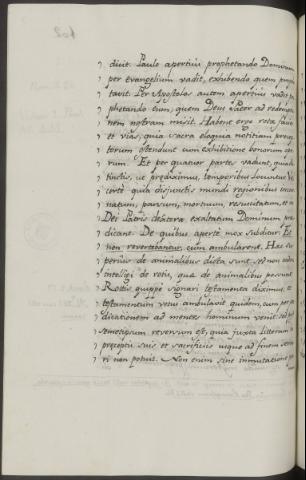 102
dixit. Paulò apertius prophetando Dominum
per Evangelium vadit, exhibendo quem prophe
tavit. Per Apostolos autem apertius vadit pro
phetando eum, quem Deus Pater ad redemptio
nem nostram misit. Habent ergo rotæ facies
et vias, quia sacra eloquia notitiam præcep
torum ostendunt cum exhibitione bonorum ope
rum. Et per quatuor partes vadunt, quia dis
tinctis, ut prædiximus, temporibus loquuntur. Vel
certè quia disjunctis mundi regionibus incar
natum, passum, mortuum, resurrexisse, et ad
Dei Patris dexteram exaltatum Dominum præ
dicant. De quibus apertè mox subditur: Et
non revertebantur, cùm ambularent. Hæc su
periùs de animalibus dicta sunt sed non eodem
intelligi de rotis, quæ de animalibus possunt.
Rotis quippe signari testamenta diximus, et
testamentum vetus ambulavit quidem, cum præ
dicationem ad mentes hominum venit: sed post
semetipsum reversum est, quia juxta litteram in
præceptis suis et sacrificiis usque ad finem serva
ri non potuit. Non enim sine immutatione